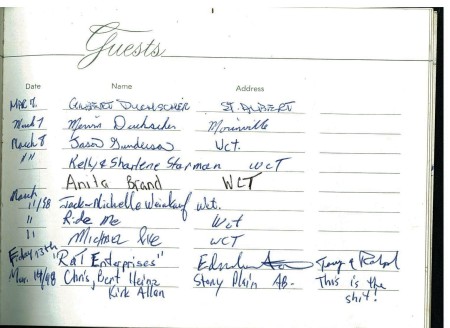 Guests
Date Name Address
MAR 7. GILBERT DUCHSCHER ST. ALBERT
March 7 Mervin Duchscher Morinville
March 8 Jason Gunderson Wct.
" " Kelly & Sharlene Starman WCT
Anita Brand WCT
March 11/98 Jack & Michelle Weinkauf Wct.
" Ride Me Wct
" Michael WCT
Friday 13th "R&T Enterprises" Tony & Ralph
Mar. 14/98 Chris, Bert Heinz Stony Plain AB. This is the
Kirk Allan shit!